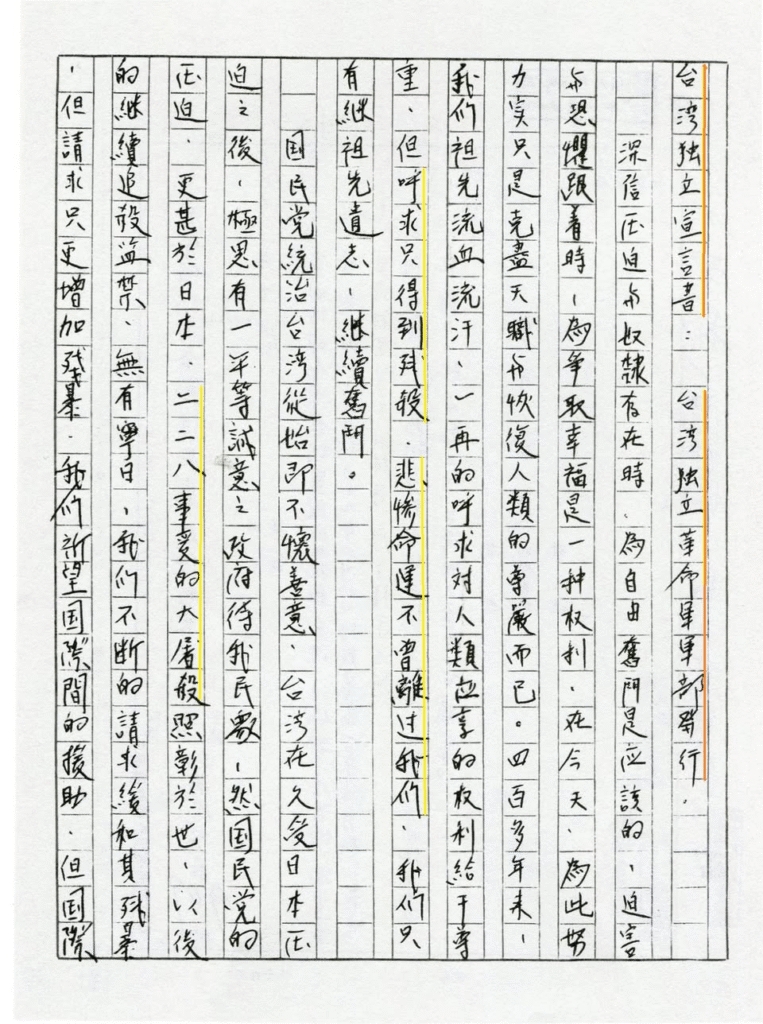 台湾独立宣言書： 台湾独立革命軍軍部發行．
深信压迫与奴隸存在時．為自由奮鬥是应該的，迫害
与恐懼跟着時，為争取幸福是一种权利．在今天．為此努
力实只是克盡天職与恢復人類的尊嚴而已。四百多年来，
我们祖先流血流汗．一再的呼求対人類应享的权利給于尊
重．但呼求只得到残殺．悲惨命運不曾離过我们．我们只
有継祖先遺志，継續奮鬥。
国民党統治台湾從始即不懷善意．台湾在久受日本压
迫之後，極思有一平等誠意之政府待我民衆，然国民党的
压迫．更甚於日本．二二八事变的大屠殺照彰於世，以後
的継續追殺监禁、無有寧日，我们不断的請求緩和其残暴
，但請求只更增加残暴．我们祈望国際間的援助．但国際